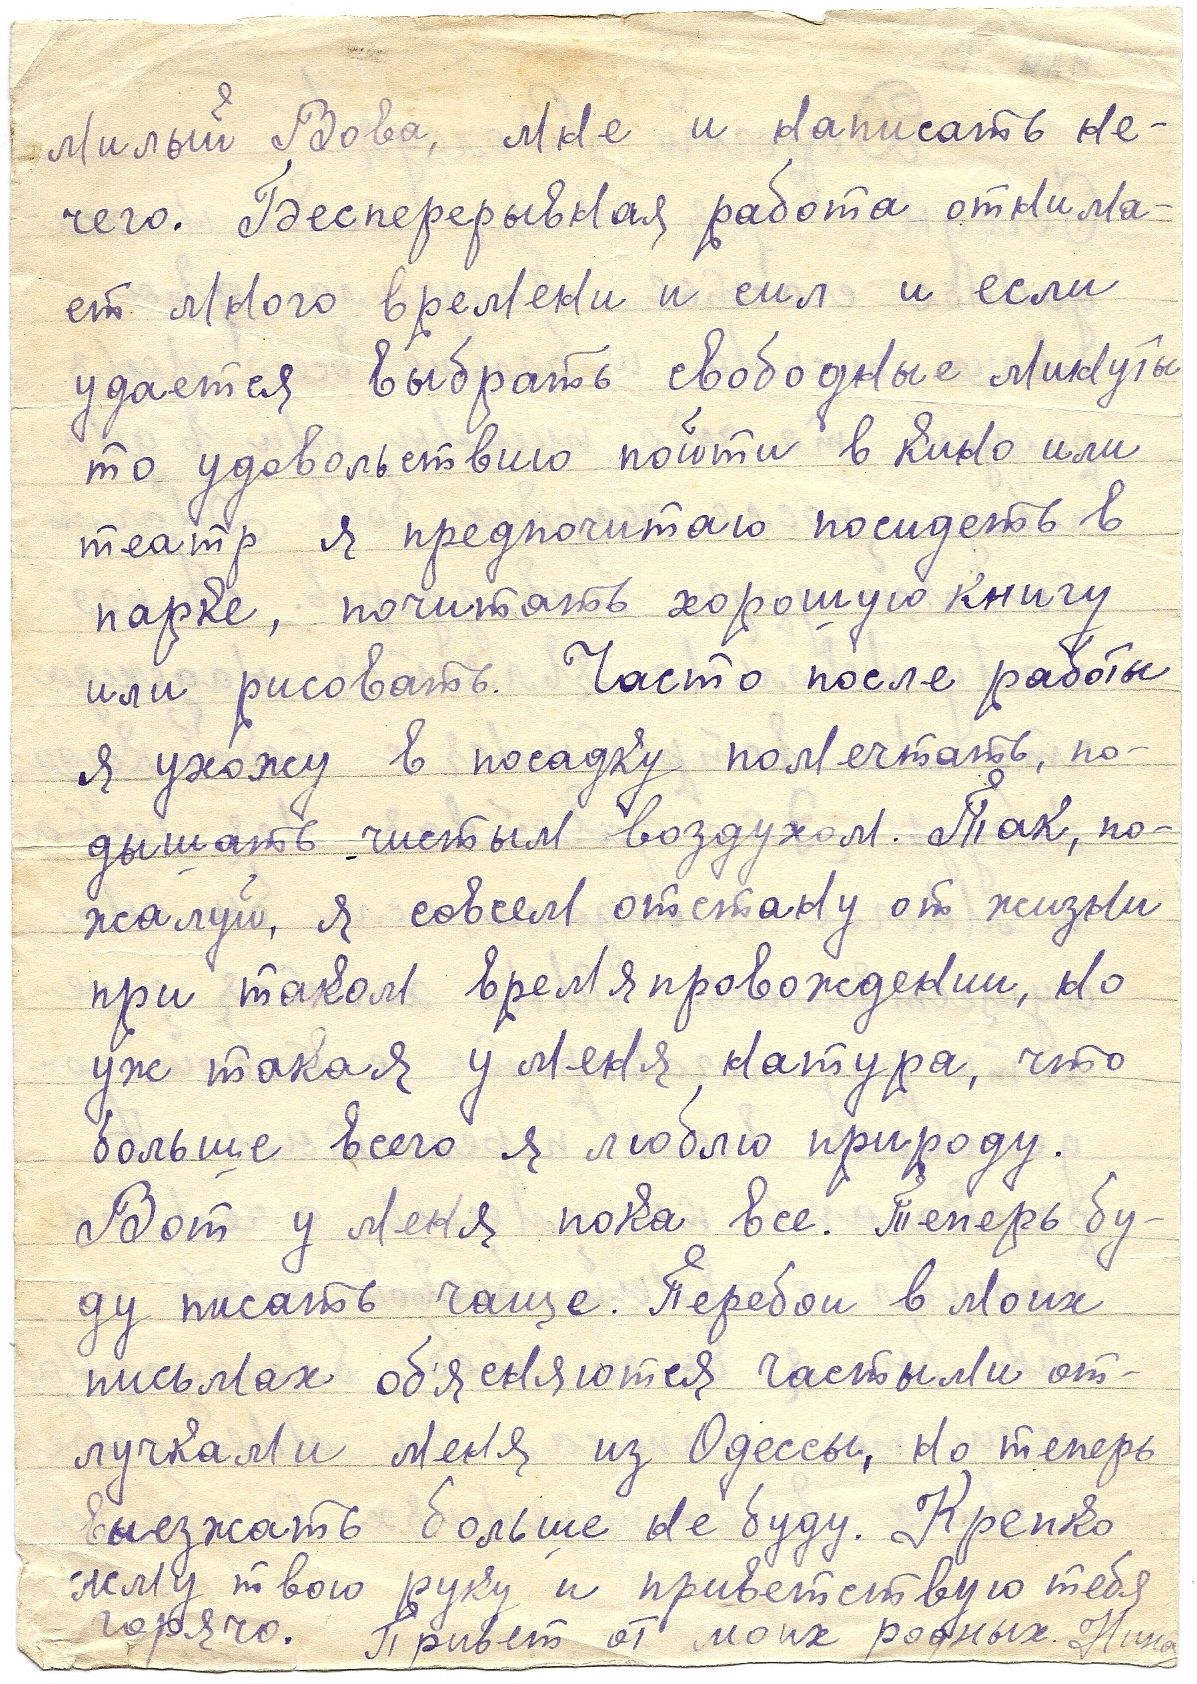 милый Вова, мне и написать не-
чего. Бесперерывная работа отнима-
ет много времени и сил и если
удается выбрать свободные минуты
то удовольствию пойти в кино или
театр я предпочитаю посидеть в
парке, почитать хорошую книгу
или рисовать. Часто после работы
я ухожу в посадку помечтать, по-
дышать чистым воздухом. Так, по-
жалуй, я совсем отстану от жизни
при таком времяпровождении, но
уж такая у меня натура, что
больше всего я люблю природу.
Вот у меня пока все. Теперь бу-
ду писать чаще. Перебои в моих
письмах об'ясняются частыми от-
лучками меня из Одессы, но теперь
выезжать больше не буду. Крепко
жму твою руку и приветствую тебя
горячо. Привет от моих родных. Нина